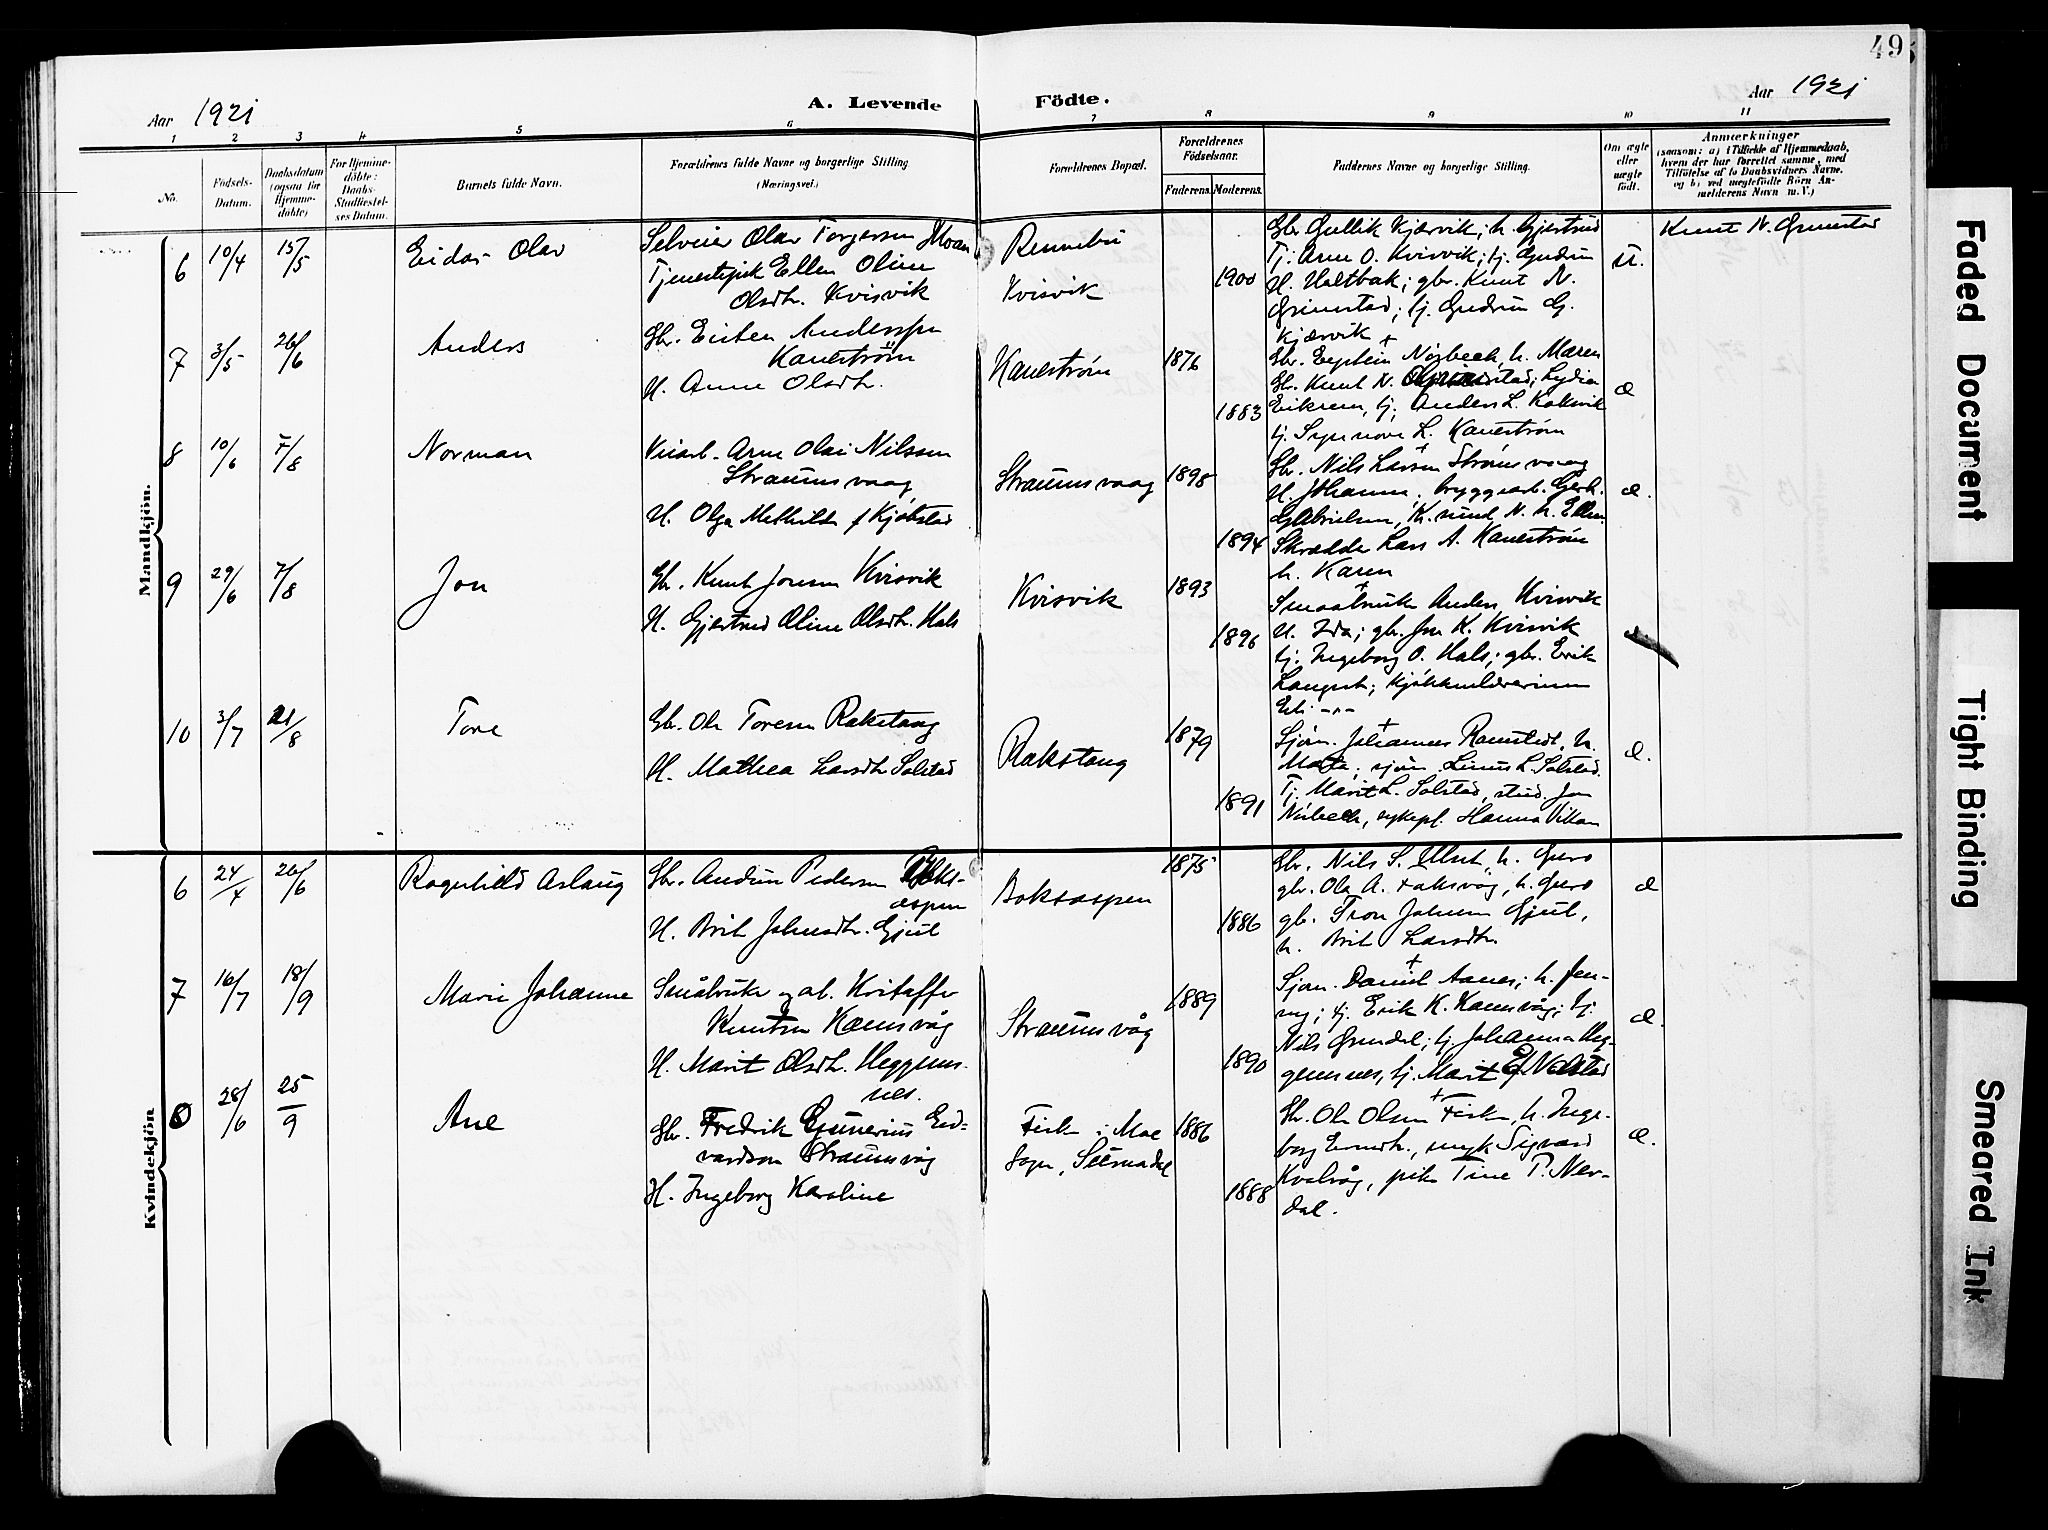 49
Aar 1921
A. Levende Födte.
Aar 1921
1 2 3 4 5 6 7 8 9 10 11
No.
Födsels-Datum.
Daabsdatum (ogsaa for Hjemme-döbte)
For Hjemme-döbte: Daabs-Stadfæstel-ses Datum.
Barnets fulde Navn.
Forældrenes fulde Navne og borgerlige Stilling
(Næringsvei.)
Forældrenes Bopæl.
Forældrenes Födselsaar.
Faderens. Moderens.
Faddernes Navne og borgerlige Stilling.
Om ægte eller uægte födt.
Anmærkninger
(saasom: a) i Tilfælde af Hjemmedaab, hvem der har forrettet samme, med Tilföielse af to Daabsvidners Navne, og b) ved uægtefödte Börn An-melderens Navn m. V.)
Mandkjön.
6 10/4 15/5 Eidar Olav
Selveier Olav Torgersen Moan
Tjenestepik Ellen Oline
Olsdtr. Kvisvik
Rennebu
Kvisvik
1900
Gbr. Gullik Kjærvik; h. Gjertrud
Tj. Arne O. Kvisvik; tj. Gudrun
H. Holtbak; gbr. Knut N.
Grimstad; tj. Gudrun G.
Kjærvik
U.
Knut N. Grimstad
7 3/5 26/6 Anders
Gbr. Eisten Anderssen
Kanestrøm
H. Anne Olsdtr.
Kanestrøm
1876
1883
Gbr. Eystein Norbech, h. Maren
Gbr. Knut N. Grimstad; Lydia
Eikrem, tj. Anders L. Koksvik
tj. Synnøve L. Kanestrøm
Æ
8 10/6 7/8 Norman
Veiarb. Arne Olai Nilssen
Straumsvaag
H. Olga Methilde f Kjøbstad
Straumsvaag
1898
1894
Gbr. Nils Larsen Strømsvaag
H. Johanna, bryggearb. Gerh.
Gabrielsen, K.sund N. h. Ellen
Skrædder Lars A. Kanestrøm
h. Karen
Æ.
9 29/6 7/8 Jon
Gbr. Knut Jonsen Kvisvik
H. Gjertrud Oline Olsdtr. Hals
Kvisvik
1893
1896
Smaabruker Anders Kvisvik
H. Ida; gbr. Jon K. Kvisvik
tj. Ingeborg O. Hals; gbr. Erik
Langset; Kjøkkenlærerinne
Eli -"-
Æ.
10 3/7 21/8 Tore
Gbr. Ole Toresen Rakstang
H. Mathea Larsdtr Solstad
Rakstang
1879
1891
Sjøm. Johannes Ramstedt, h.
Marta; sjøm. Linus L. Solstad.
Tj. Marit L. Solstad, stud. Jon
Norbech, sykepl. Hanna Vikan
Æ.
Kvindekjön
6 24/4 26/6 Ragnhild Aslaug
Gbr. Audun Pedersen Boks-
aspen
H. Brit Johnsdtr. Gjul
Boksaspen
1875
1886
Gbr. Nils S. Ulset, h. Guro
gbr. Ola A. Foksvåg, h. Guro
gb. Tron Johnsen Gjul,
h. Brit Larsdtr.
Æ
7 16/7 18/9 Marie Johanne
Småbruker og arb. Kristoffer
Knutsen Kamsvåg
H. Marit Olsdtr. Heggems-
nes.
Straumsvåg
1889
1890
Sjøm. Daniel Aanes; h. Jen-
ny; tj. Erik K. Kamsvåg; tj.
Nils Grundal; tj. Johanna Heg-
gemsnes, tj. Marit Nerstad
Æ.
8 28/6 25/9 Ane
Gbr. Fredrik Gunerius Ed-
vardsen Straumsvåg
H. Ingeborg Karoline
Fiske i Moe
Sogn, Surnadal
1886
1888
Gbr. Ole Olsen Fiske, h. Inge-
borg Evensdtr., ungk. Sigvard
Kvalvåg, pike Tine P. Ner-
dal.
Æ.
Faded Document
Tight Binding
Smeared Ink